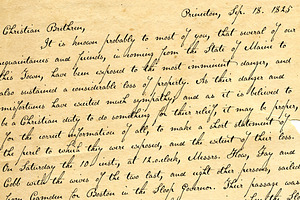 Princeton, Sep. 18. 1825
Christian Brethren,
It is known probably to most of you, that several of our
acquaintances and friends, in coming from the State of Maine to
this Town, have been exposed to the most imminent danger, and
also sustained a considerable loss of property. As their danger and
misfortunes have excited much sympathy, and as it is believed to
be a Christian duty to do something for their relief, it may be proper,
for the correct information of all, to make a short statement of
the peril to which they were exposed, and the extent of their loss.
On Saturday the 10 inst, at 12 o'clock, Messrs. How, Gay and
Cobb with the wives of the two last, and eight other persons, sailed
from Camden for Boston in the Sloop Governor. Their passage was